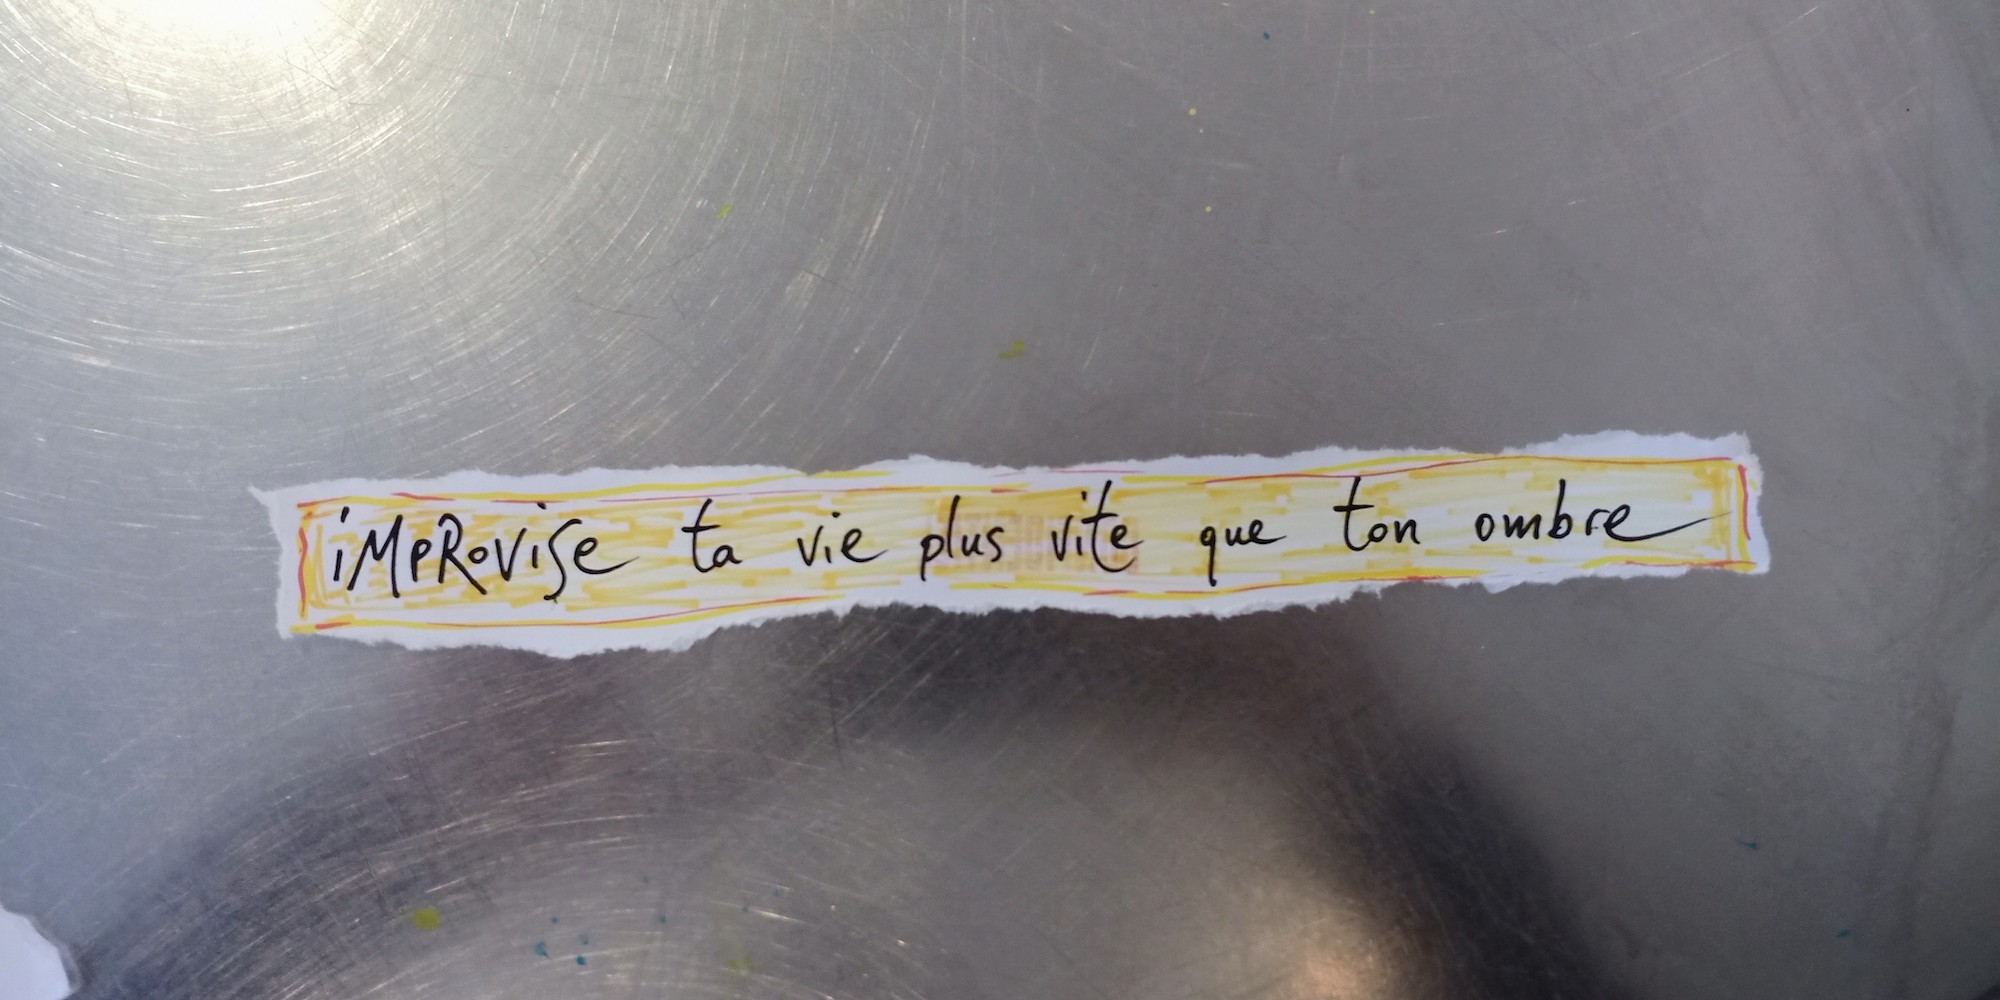 iMPROViSe ta vie plus vite que ton ombre